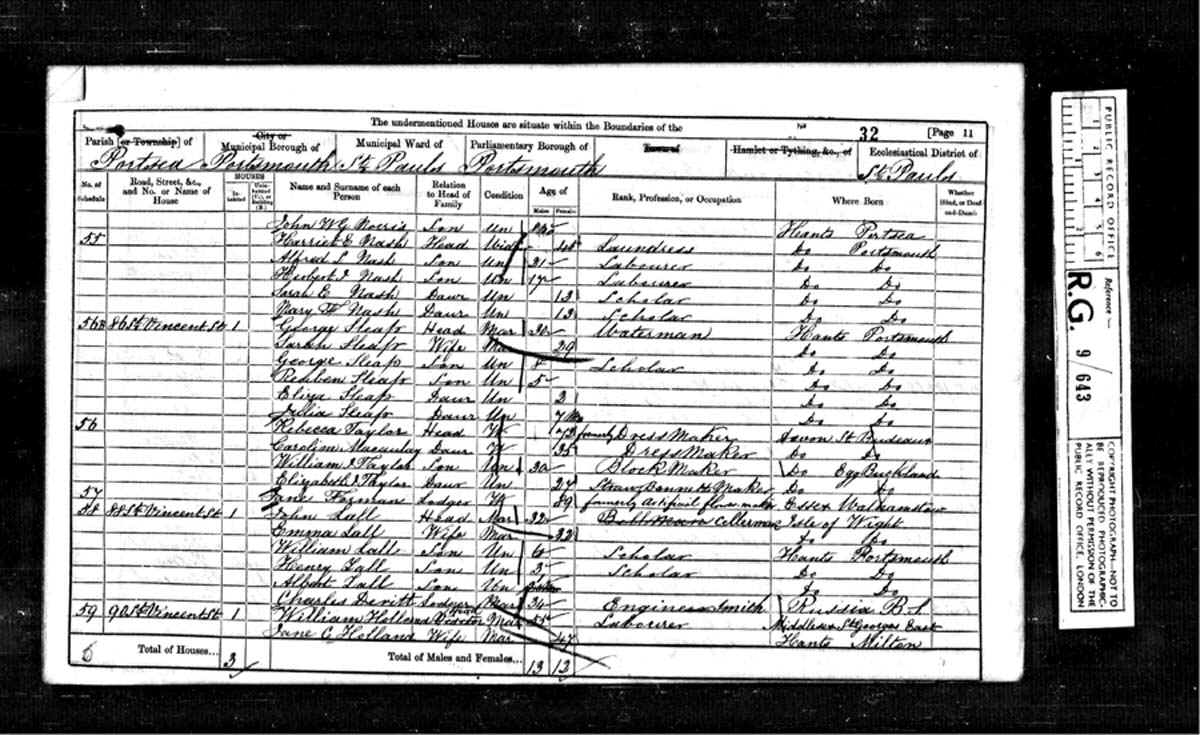 The undermentioned Houses are situate within the Boundaries of the
32 [Page 11
Parish [or Township] of City or Municipal Borough of Municipal Ward of Parliamentary Borough of Town of Hamlet or Tything, &c., of Ecclesiastical District of
Portsea Portsmouth St Pauls Portsmouth St Pauls
No. of Schedule Road, Street, &c., and No. or Name of House HOUSES Inhabited Uninhabited (U.), or Building (B.) Name and Surname of each Person Relation to Head of Family Condition Age of Males Females Rank, Profession, or Occupation Where Born Whether Blind, or Deaf-and-Dumb
John W G Norris Son Un Hants Portsea
55 Harriet E Nash Head Wid Laundress Do Portsmouth
Alfred S Nash Son Un 21 Labourer Do Do
Herbert J Nash Son Un 17 Labourer Do Do
Sarah E Nash Daur Un 13 Scholar Do Do
Mary Nash Daur Un 13 Scholar Do Do
86 St Vincent St 1 George Sleap Head Mar Waterman Hants Portsmouth
Sarah Sleap Wife Mar 29 Do Do
George Sleap Son Un Scholar Do Do
Reuben Sleap Son Un 5 Do Do
Eliza Sleap Daur Un 2 Do Do
Julia Sleap Daur Un 7 Mo Do Do
56 Rebecca Taylor Head W 73 formerly Dress Maker Devon St Budeaux
Caroline Macaulay Daur W 35 Dress Maker Do Do
William J Taylor Son Un 30 Block Maker Do Egg Buckland
Elizabeth J Taylor Daur Un 27 Straw Bonnet Maker Do Do
57 Jane Lodger W 89 formerly Artificial flower maker Essex Walthamstow
58 88 St Vincent St 1 John Lall Head Mar 32 Cellerman Isle of Wight
Emma Lall Wife Mar 32 Do Do
William Lall Son Un 6 Scholar Hants Portsmouth
Henry Lall Son Un 3 Scholar Do Do
Albert Lall Son Un Do Do
Charles Devitt Lodger Mar 34 Engineer Smith Russia B.S.
59 90 St Vincent St 1 William Holland Head Mar Labourer Middlesex St Georges East
Jane C Holland Wife Mar 47 Hants Milton
6 Total of Houses... 3 Total of Males and Females... 13 12
PUBLIC RECORD OFFICE
1 2 3 4 5 6
Reference:—
R.G. 9/643
COPYRIGHT PHOTOGRAPH—NOT TO
BE REPRODUCED PHOTOGRAPHIC-
ALLY WITHOUT PERMISSION OF THE
PUBLIC RECORD OFFICE, LONDON